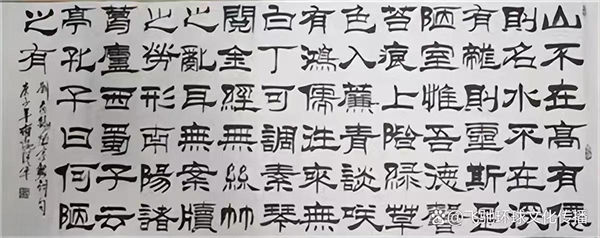 山不在高有僊
則名水不在深
有龍則靈斯是
陋室惟吾德馨
苔痕上階緑草
色入簾青談咲
有鴻儒往來無
白丁可調素琴
閱金經無絲竹
之亂耳無案牘
之勞形南陽諸
葛廬西蜀子云
亭孔子曰何陋
之有
劉禹錫
飞驰环球文化传播